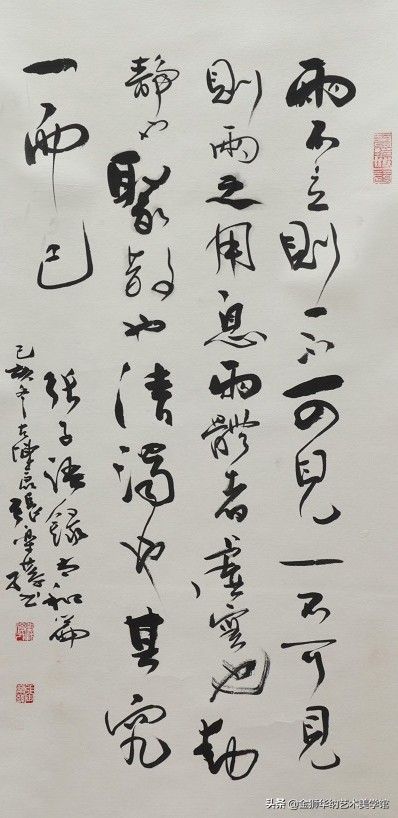 兩不立則一不可見一不可見
則兩之用息兩體者虛實也動
靜也聚散也清濁也其究
一而已
張子語錄太和篇
己亥
头条 @金狮华纳艺术美学馆